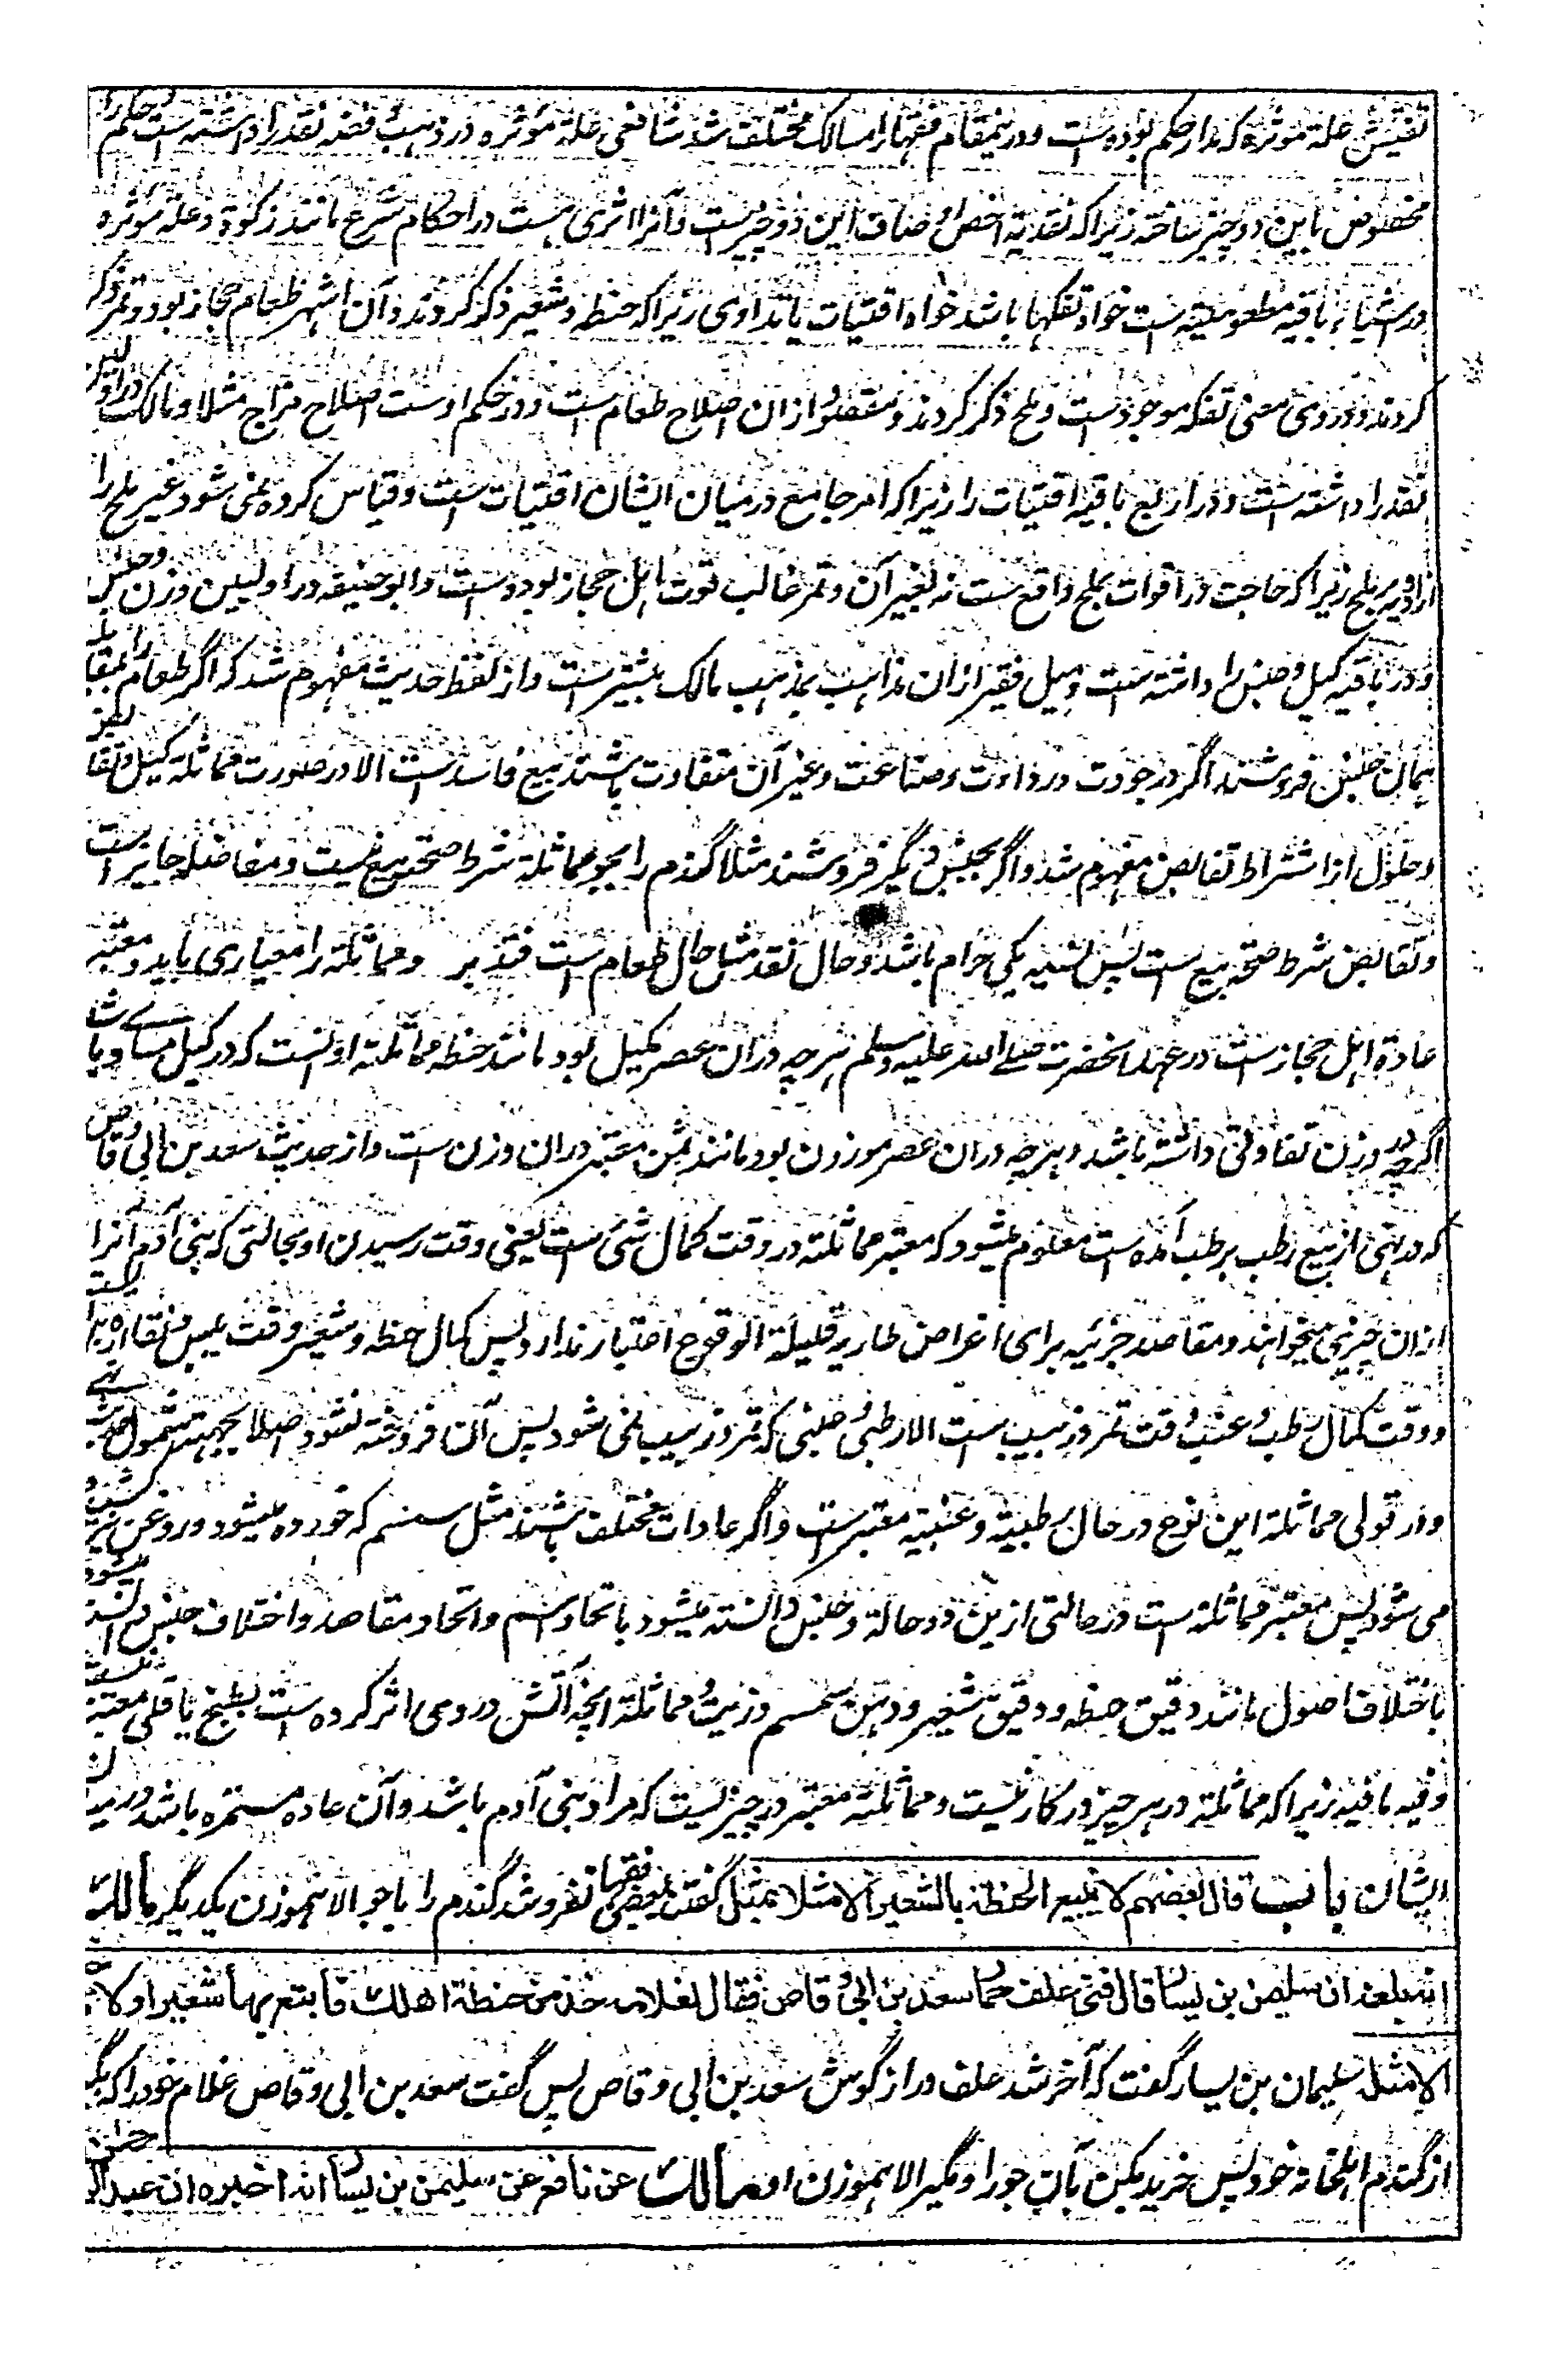 تفتیش علة موثره که مدار حکم بوده است و درینمقام فقها را مسالک مختلف شد شافعی علة موثره در ذهب و فضه نقد را داشته است و حکم را
مخصوص باین دو چیز ساخته زیرا که نقدیة اخص اوصاف این دو چیز است و آنرا اثری هست در احکام شرع مانند زکوة و علة موثره
در اشیاء باقیه مطعومیة است خواه تفکها باشد خواه اقتیات یا تداوی زیرا که حنطه و شعیر ذکر کردند و آن اشهر طعام حجاز بود و تمر ذکر
کردند و در وی معنی تفکه موجود است و ملح ذکر کردند و مقصود ازان اصلاح طعام است و در حکم اوست اصلاح مزاج مثلا و مالک در اولین
نقد را داشته است و در اربع باقیه اقتیات را زیرا که امر جامع درمیان ایشان اقتیات است و قیاس کرده نمی شود غیر ملح را
از ادویه بر ملح زیرا که حاجت در اقوات بملح واقع است نه بغیر آن و تمر غالب قوت اهل حجاز بوده است و ابو حنیفه در اولیین وزن و جنس
و در باقیه کیل و جنس را داشته است و میل فقیر ازان مذاهب بمذهب مالک بیشتر است و از لفظ حدیث مفهوم شد که اگر طعام را بمقابله
همان جنس فروشند اگر در جودت و رداءت و صناعت و غیر آن متفاوت باشند بیع فاسد است الا در صورت مماثلة کیل و تقابض
و حلول از اشتراط تقابض مفهوم شد و اگر بجنس دیگر فروشند مثلا گندم را بجو مماثلة شرط صحة بیع نیست و مفاضله جایز است
و تقابض شرط صحة بیع است پس نسیه یکی حرام باشد و حال نقد مثل حال طعام است فتدبر و مماثلة را معیاری باید و معتبر
عادة اهل حجاز است در عهد آنحضرت صلے الله علیه وسلم هرچه دران عصر مکیل بود مانند حنطه مماثلة او آنست که در کیل مساوی باشد
اگرچه در وزن تفاوتی داشته باشد و هرچه دران عصر موزون بود مانند ثمن معتبر دران وزن است و از حدیث سعد بن ابی وقاص
که در نهی از بیع رطب برطب آمده است معلوم میشود که معتبر مماثلة در وقت کمال شئ است یعنی وقت رسیدن او بحالتی که بنی آدم آنرا
ازان چیز می خواهند و مقاصد جزئیه برای اغراض طاریه قلیلة الوقوع اعتبار ندارد پس کمال حنطه و شعیر وقت یبس و نقا
و وقت کمال رطب و عنب وقت تمر و زبیب است الا رطبی و عنبی که تمر و زبیب نمی شود پس آن فروخته نشود اصلا بجهت شمول
و در قولی مماثلة این نوع در حال رطبیة و عنبیة معتبر است و اگر عادات مختلف باشند مثل سمسم که خورده میشود و روغن نیز
می شود پس معتبر مماثلة است در حالتی ازین دو حالة و جنس دانسته میشود باتحاد اسم و اتحاد مقاصد و اختلاف جنس
باختلاف اصول مانند دقیق حنطه و دقیق شعیر و دهن سمسم و زیت و مماثلة آنچه آتش در وی اثر کرده است بطبخ یا قلی معتبر نیست
و فیه ما فیه زیرا که مماثلة در هر چیز در کار نیست و مماثلة معتبر در چیز یست که مراد بنی آدم باشد و آن عاده مستمره باشد در میان
ایشان باب قال بعضهم لا یبیع الحنطة بالشعیر الا مثلا بمثل گفتند بعضی فقها نفروشد گندم را با جو الا هموزن یکدیگر مالک
انه بلغه ان سلیمن بن یسار قال فنی علف حمار سعد بن ابی وقاص فقال لغلامه خذ من حنطة اهلک فابتع بها شعیرا ولا
الا مثله سلیمان بن یسار گفت که آخر شد علف دراز گوش سعد بن ابی وقاص پس گفت سعد بن ابی وقاص غلام خود را که بگیر
از گندم اهلخانه خود پس خرید بکن بآن جو را و مگیر الا هموزن او مالک عن نافع عن سلیمن بن یسار انه اخبره ان عبد الرحمن